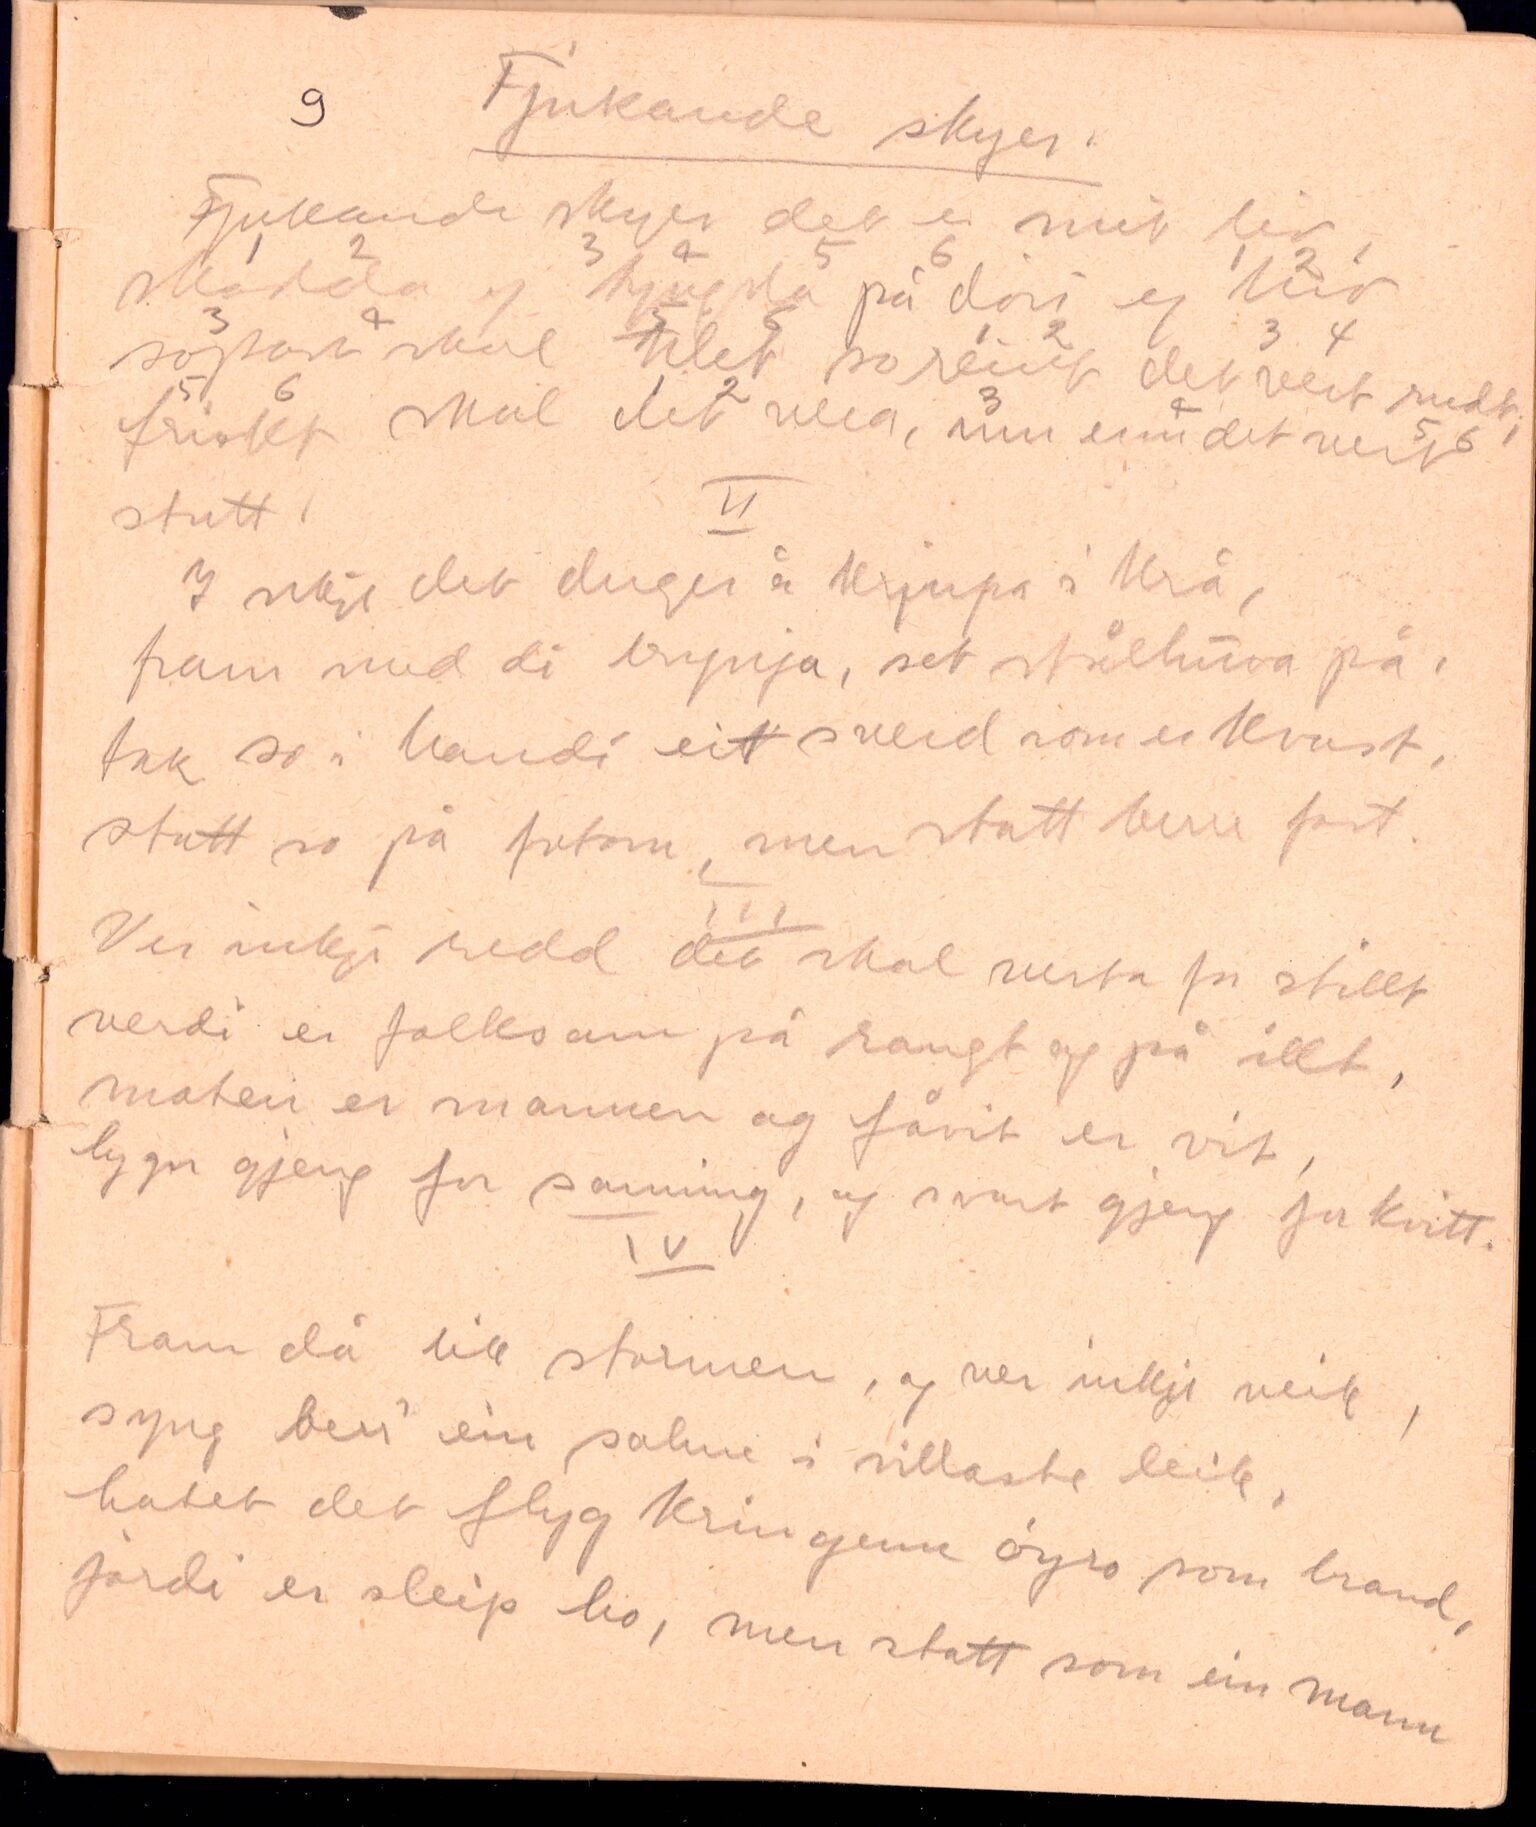 9 Fjukande skyer.
Fjukande skyer det er mit liv,
1 2 3 4 5 6 1 2
skodda og på dori eg
3 4 5 6 1 2 3 4
skal so reint det vert rudt,
5 6 1 2 3 4 5 6
friskt skal det vera, um enn det vert
stutt.
II
Ikkje det duger å krjupa i krå,
fram med di brynja, set stålhuva på,
tak so i handi eit sverd som er kvast,
statt so på fotom, men statt berre fast.
III
Ver inkje redd det skal verta for stillt
verdi er folksam på rangt og på illt,
maten er mannen og fåvit er vit,
lygn gjeng for sanning, og svart gjeng for kvitt.
IV
Fram då lik stormen, og ver inkje veik,
syng berr' ein salme i villaste leik,
hatet det flyg kringum øyro som brand,
jordi er sleip ho, men statt som ein mann